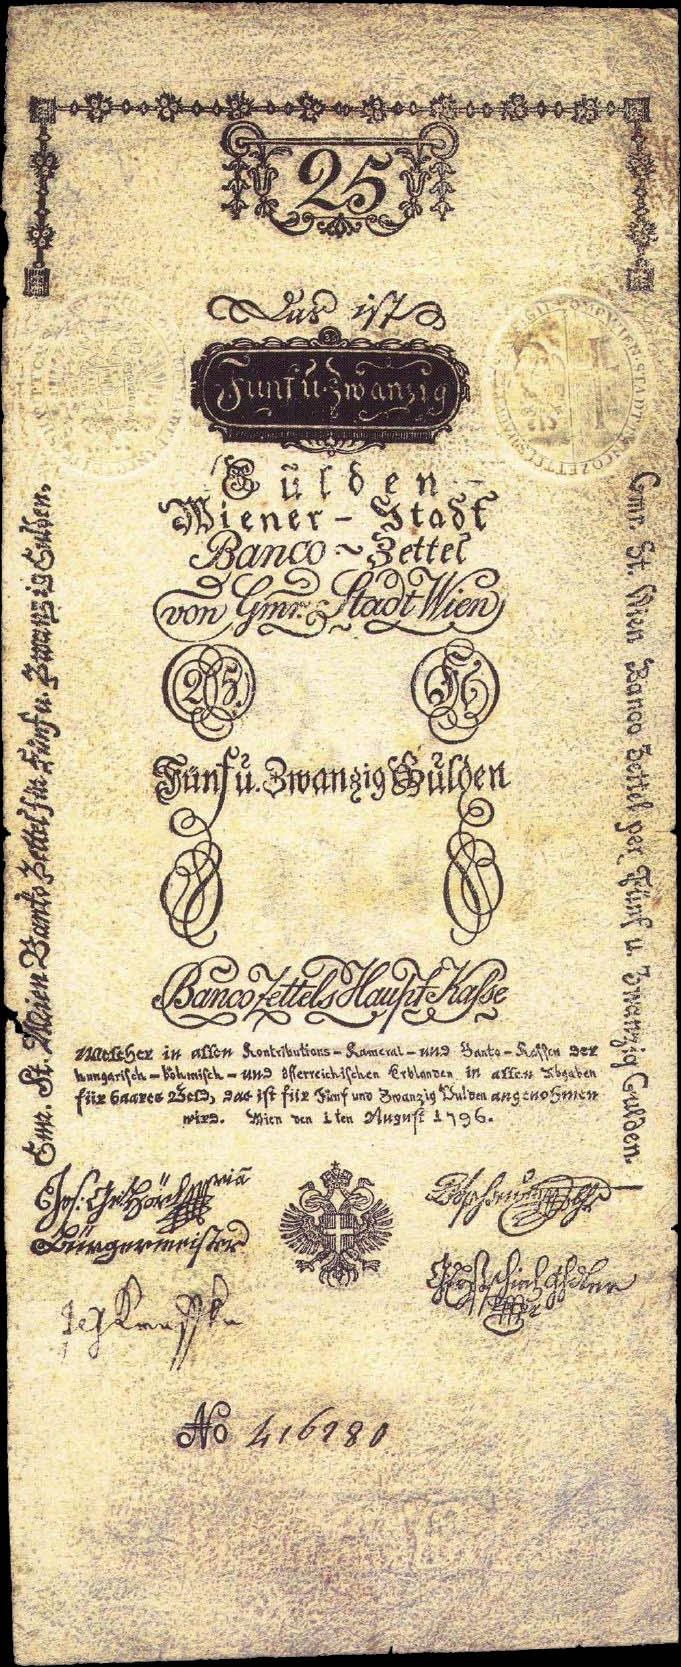 25
Das ist
Fünf u. Zwanzig
Gülden
Wiener - Stadt
Banco ~ Zettel
von Gmr. Stadt Wien
25. Fl
Fünf u. Zwanzig Gülden
Banco Zettels Haupt Kasse
Welcher in allen Kontributions - Kameral - und Banko - Kassen der
hungarisch - böhmisch - und österreichischen Erblanden in allen Abgaben
für baares Geld, das ist für Fünf und Zwanzig Gulden angenohmen
wird. Wien den 1ten August 1796.
Gmr. St. Wien Banko Zettel für Fünf u. Zwanzig Gulden.
Gmr. St. Wien Banco Zettel per Fünf u. Zwanzig Gulden.
Jos: Geo: Hörl
Bürgermeister
No 416280